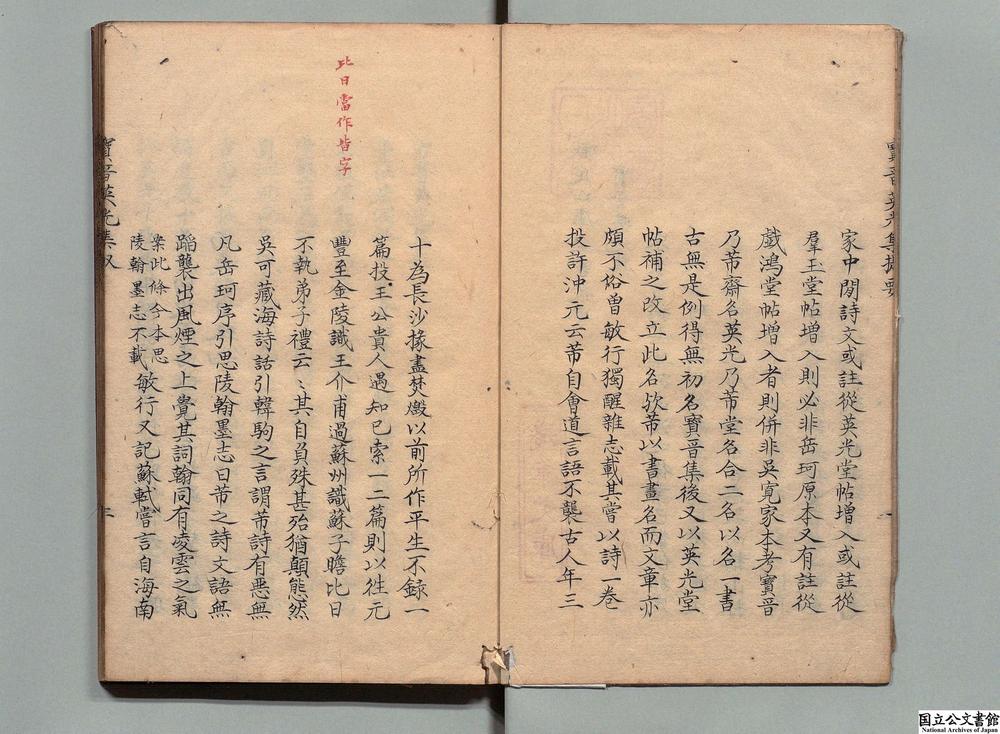 家中間詩文或註從英光堂帖增入或註從
羣玉堂帖增入則必非岳珂原本又有註從
戲鴻堂帖增入者則併非吳寬家本考寶晉
乃芾齋名英光乃芾堂名合二名以名一書
古無是例得無初名寶晉集後又以英光堂
帖補之改立此名歟芾以書畫名而文章亦
頗不俗曾敏行獨醒雜志載其嘗以詩一卷
投許沖元云芾自會道言語不襲古人年三
十為長沙掾盡焚燬以前所作平生不錄一
篇投王公貴人遇知己索一二篇則以往元
豐至金陵識王介甫過蘇州識蘇子瞻比日
不執弟子禮云〻其自負殊甚殆猶顛態然
吳可藏海詩話引韓駒之言謂芾詩有惡無
凡岳珂序引思陵翰墨志曰芾之詩文語無
蹈襲出風煙之上覺其詞翰同有凌雲之氣
案此條今本思
陵翰墨志不載
敏行又記蘇軾嘗言自海南
比日當作皆字
寶晉英光集
国立公文書館
National Archives of Japan